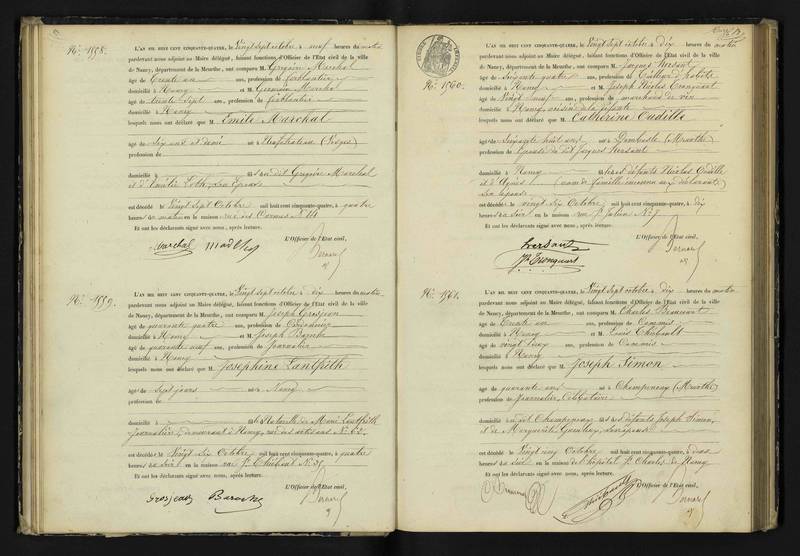 N.º 1558.
L'AN MIL HUIT CENT CINQUANTE-QUATRE, le Vingt Sept octobre à neuf heures du matin
pardevant nous adjoint au Maire délégué, faisant fonctions d'Officier de l'Etat civil de la ville
de Nancy, département de la Meurthe, ont comparu M. Grégoire Marchal
âgé de trente un ans, profession de ferblantier
domicilié à Nancy et M. Germain Marchal
âgé de trente Sept ans, profession de ferblantier
domicilié à Nancy
lesquels nous ont déclaré que M. Emile Marchal
âgé de Six ans et demi né à Neufchateau (Vosges)
profession de
domicilié à fils du dit Grégoire Marchal
et d' Amélie Son Epouse
est décédé le Vingt Sept Octobre mil huit cent cinquante-quatre, à quatre
heures du matin en la maison rue des Carmes N.º 14
Et ont les déclarants signé avec nous, après lecture.
L'Officier de l'Etat civil,
Marchal
N.º 1559.
L'AN MIL HUIT CENT CINQUANTE-QUATRE, le Vingt Sept octobre à dix heures du matin
pardevant nous adjoint au Maire délégué, faisant fonctions d'Officier de l'Etat civil de la ville
de Nancy, département de la Meurthe, ont comparu M. Joseph Grosjean
âgé de quarante quatre ans, profession de Cordonnier
domicilié à Nancy et M. Joseph
âgé de quarante neuf ans, profession de Journalier
domicilié à Nancy
lesquels nous ont déclaré que M. Josephine Lantfrith
âgé de Sept jours né à Nancy
profession de
domicilié à fille Naturelle de Marie Lantfrith
journalière, demeurant à Nancy, rue des artisans N.º
est décédée le Vingt Six Octobre mil huit cent cinquante-quatre, à quatre
heures du Soir en la maison rue S.t Thiébaut N.º
Et ont les déclarants signé avec nous, après lecture.
L'Officier de l'Etat civil,
Grosjean
N.º 1560.
L'AN MIL HUIT CENT CINQUANTE-QUATRE, le Vingt Sept octobre à dix heures du matin
pardevant nous adjoint au Maire délégué, faisant fonctions d'Officier de l'Etat civil de la ville
de Nancy, département de la Meurthe, ont comparu M. Jacques Versant
âgé de Soixante quatre ans, profession de Tailleur d'habits
domicilié à Nancy et M. Joseph Nicolas Tronquart
âgé de Vingt neuf ans, profession de marchand de vin
domicilié à Nancy, voisin de la défunte
lesquels nous ont déclaré que M. Catherine Oudille
âgée de Soixante huit ans née à Dombasle (Meurthe)
profession de Epouse du dit Jacques Versant
domicilié à Nancy fille des défunts Nicolas Oudille
et d' Agnès (nom de famille inconnu aux déclarants)
Son épouse
est décédée le vingt Six Octobre mil huit cent cinquante-quatre, à dix
heures du Soir en la maison rue S.t Julien N.º 7
Et ont les déclarants signé avec nous, après lecture.
L'Officier de l'Etat civil,
Versant
Tronquart
N.º 1561.
L'AN MIL HUIT CENT CINQUANTE-QUATRE, le Vingt Sept octobre à dix heures du matin
pardevant nous adjoint au Maire délégué, faisant fonctions d'Officier de l'Etat civil de la ville
de Nancy, département de la Meurthe, ont comparu M. Charles
âgé de trente un ans, profession de Commis
domicilié à Nancy et M. Louis Thiébault
âgé de vingt deux ans, profession de Commis
domicilié à Nancy
lesquels nous ont déclaré que M. Joseph Simon
âgé de quarante ans né à Champenoux (Meurthe)
profession de Journalier, Célibataire
domicilié au dit Champenoux fils des défunts Joseph Simon
et de Marguerite Son épouse
est décédé le Vingt cinq Octobre mil huit cent cinquante-quatre, à deux
heures du Soir en la maison de l'hôpital S.t Charles de Nancy
Et ont les déclarants signé avec nous, après lecture.
L'Officier de l'Etat civil,
Thiébault